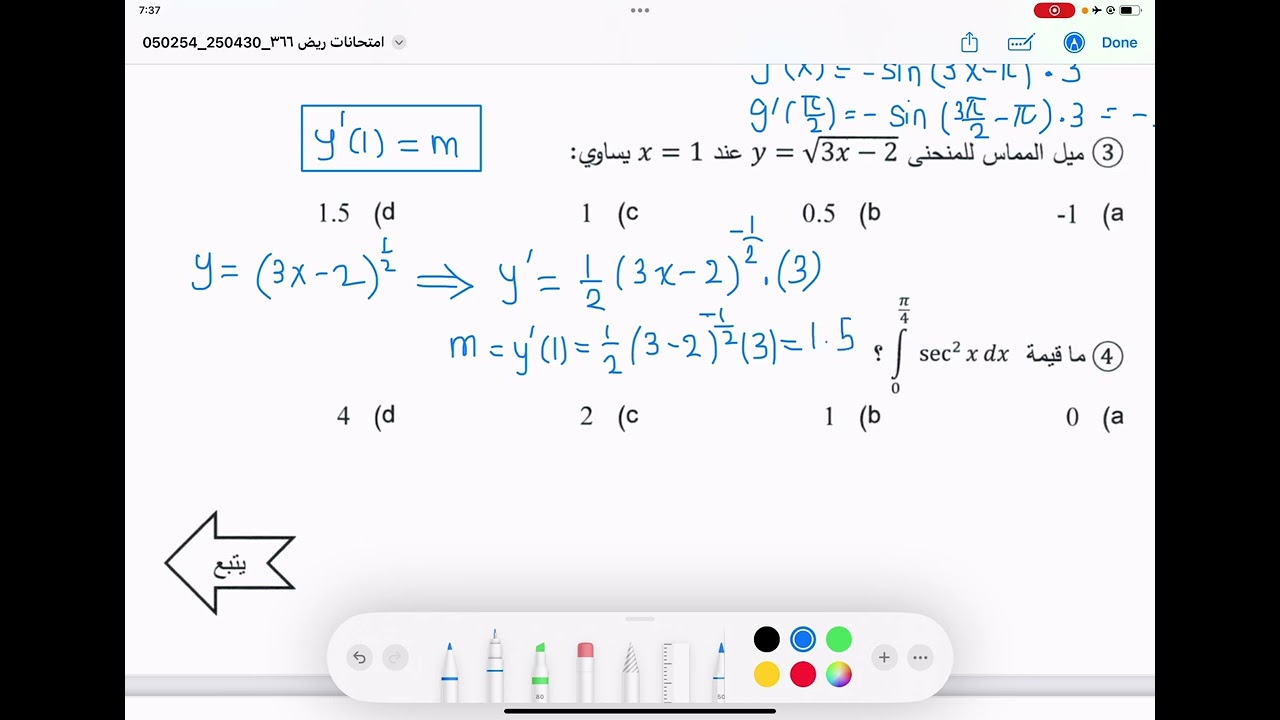 7:37
امتحانات ريض ٣٦٦_250430_050254
Done
g'(x) = -sin(3x-π)·3
g'(π/2) = -sin(3π/2-π)·3 = -
y'(1) = m
③ ميل المماس للمنحنى y = √(3x − 2) عند x = 1 يساوي:
a) -1 b) 0.5 c) 1 d) 1.5
y = (3x-2)^(1/2) ⟹ y' = 1/2 (3x-2)^(-1/2)·(3)
m = y'(1) = 1/2 (3-2)^(-1/2) (3) = 1.5
④ ما قيمة ∫₀^(π/4) sec² x dx ؟
a) 0 b) 1 c) 2 d) 4
يتبع
80
50